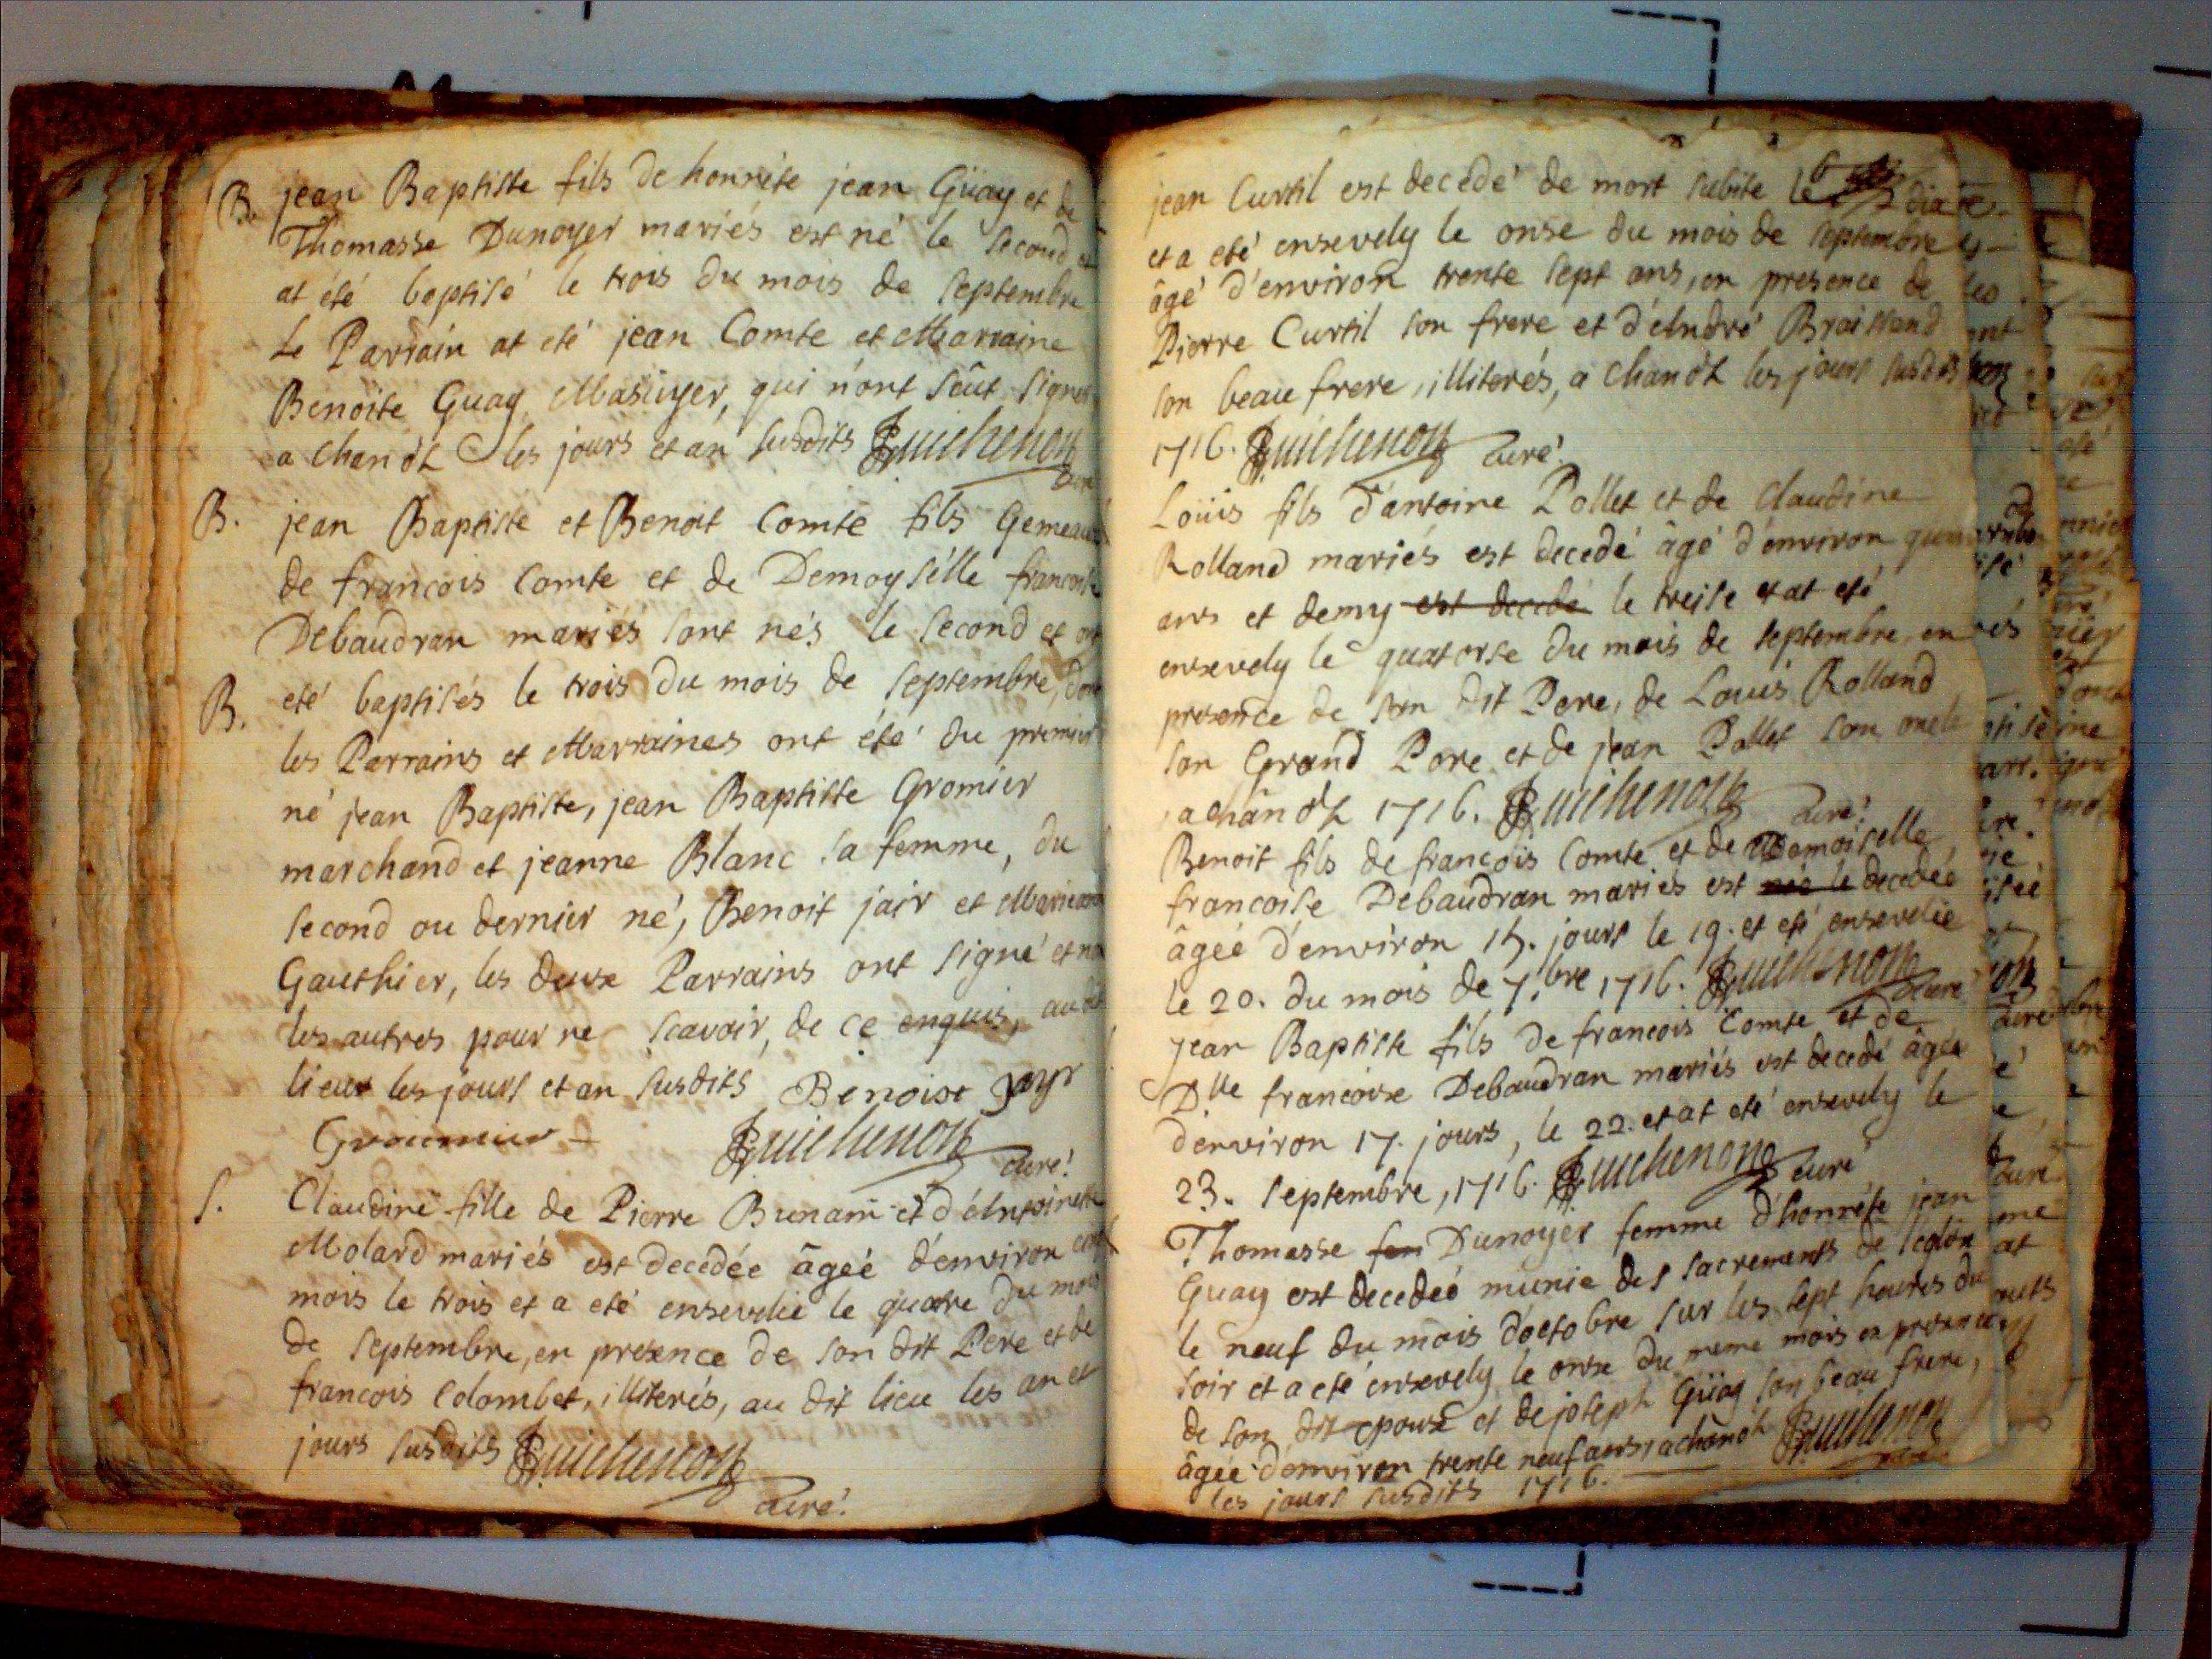 B. jean Baptiste fils de honnéte jean Güay et de
Thomasse Dunoyer mariés est né le second et
at été baptisé le trois du mois de septembre
Le Parrain at eté jean Comte et Marraine
Benoite Guay Masuyer, qui n'ont sêut signer
a chanôz les jours et an susdits Guichenon
curé
B. jean Baptiste et Benoit Comte fils Gemeaux
de francois Comte et de Demoysélle francoise
Debaudran mariés sont nés le second et ont
B. eté baptisés le trois du mois de septembre, dont
les Parrains et Marraines ont été du premier
né jean Baptiste, jean Baptiste Gromier
marchand et jeanne Blanc sa femme, du
second ou dernier né, Benoit jair et
Gauthier, les deux Parrains ont signé et non
les autres pour ne scavoir, de ce enquis, au dit
lieu les jours et an susdits Benoist Jayr
Groumier Guichenon
curé.
S. Claudine fille de Pierre Brunam et d'Antoinette
Molard mariés est decedée âgée d'environ
mois le trois et a eté ensevelie le quatre du mois
de septembre, en presence de son dit Pere et de
francois Colombet, illiterés, au dit lieu les an et
jours susdits Guichenon
curé.
jean Curtil est decedé de mort subite le dix
et a eté ensevely le onse du mois de septembre
âgé d'environ trente sept ans, en presence de
Pierre Curtil son frere et d'André Braissand
son beau frere, illiterés, a chanôz les jours susdits
1716. Guichenon curé.
Loüis fils d'antoine Pollet et de Claudine
Rolland mariés est decedé âgé d'environ
ans et demy est decedé le treise et at eté
ensevely le quatorse du mois de septembre, en
presence de son dit Pere, de Louis Rolland
son Grand Pere et de jean Pollet son oncle
a chânôz 1716. Guichenon curé.
Benoit fils de francois Comte et de Demoiselle
francoise Debaudran mariés est née le decedée
âgée d'environ 15. jours le 19. et eté ensevelie
le 20. du mois de 7.bre 1716. Guichenon curé
jean Baptiste fils de francois Comte et de
D.lle francoise Debaudran mariés est decedé âgée
d'environ 17. jours, le 22. et at eté ensevely le
23. septembre, 1716. Guichenon curé
Thomasse fem Dunoyer femme d'honnéte jean
Guay est decedée munie des sacrements de l'eglise
le neuf du mois d'octobre sur les sept heures du
soir et a eté ensevely le onse du meme mois en presence
de son dit epoux et de joseph Güay son beau frere,
âgée d'environ trente neuf ans, a chanôz Guichenon
les jours susdits 1716. curé